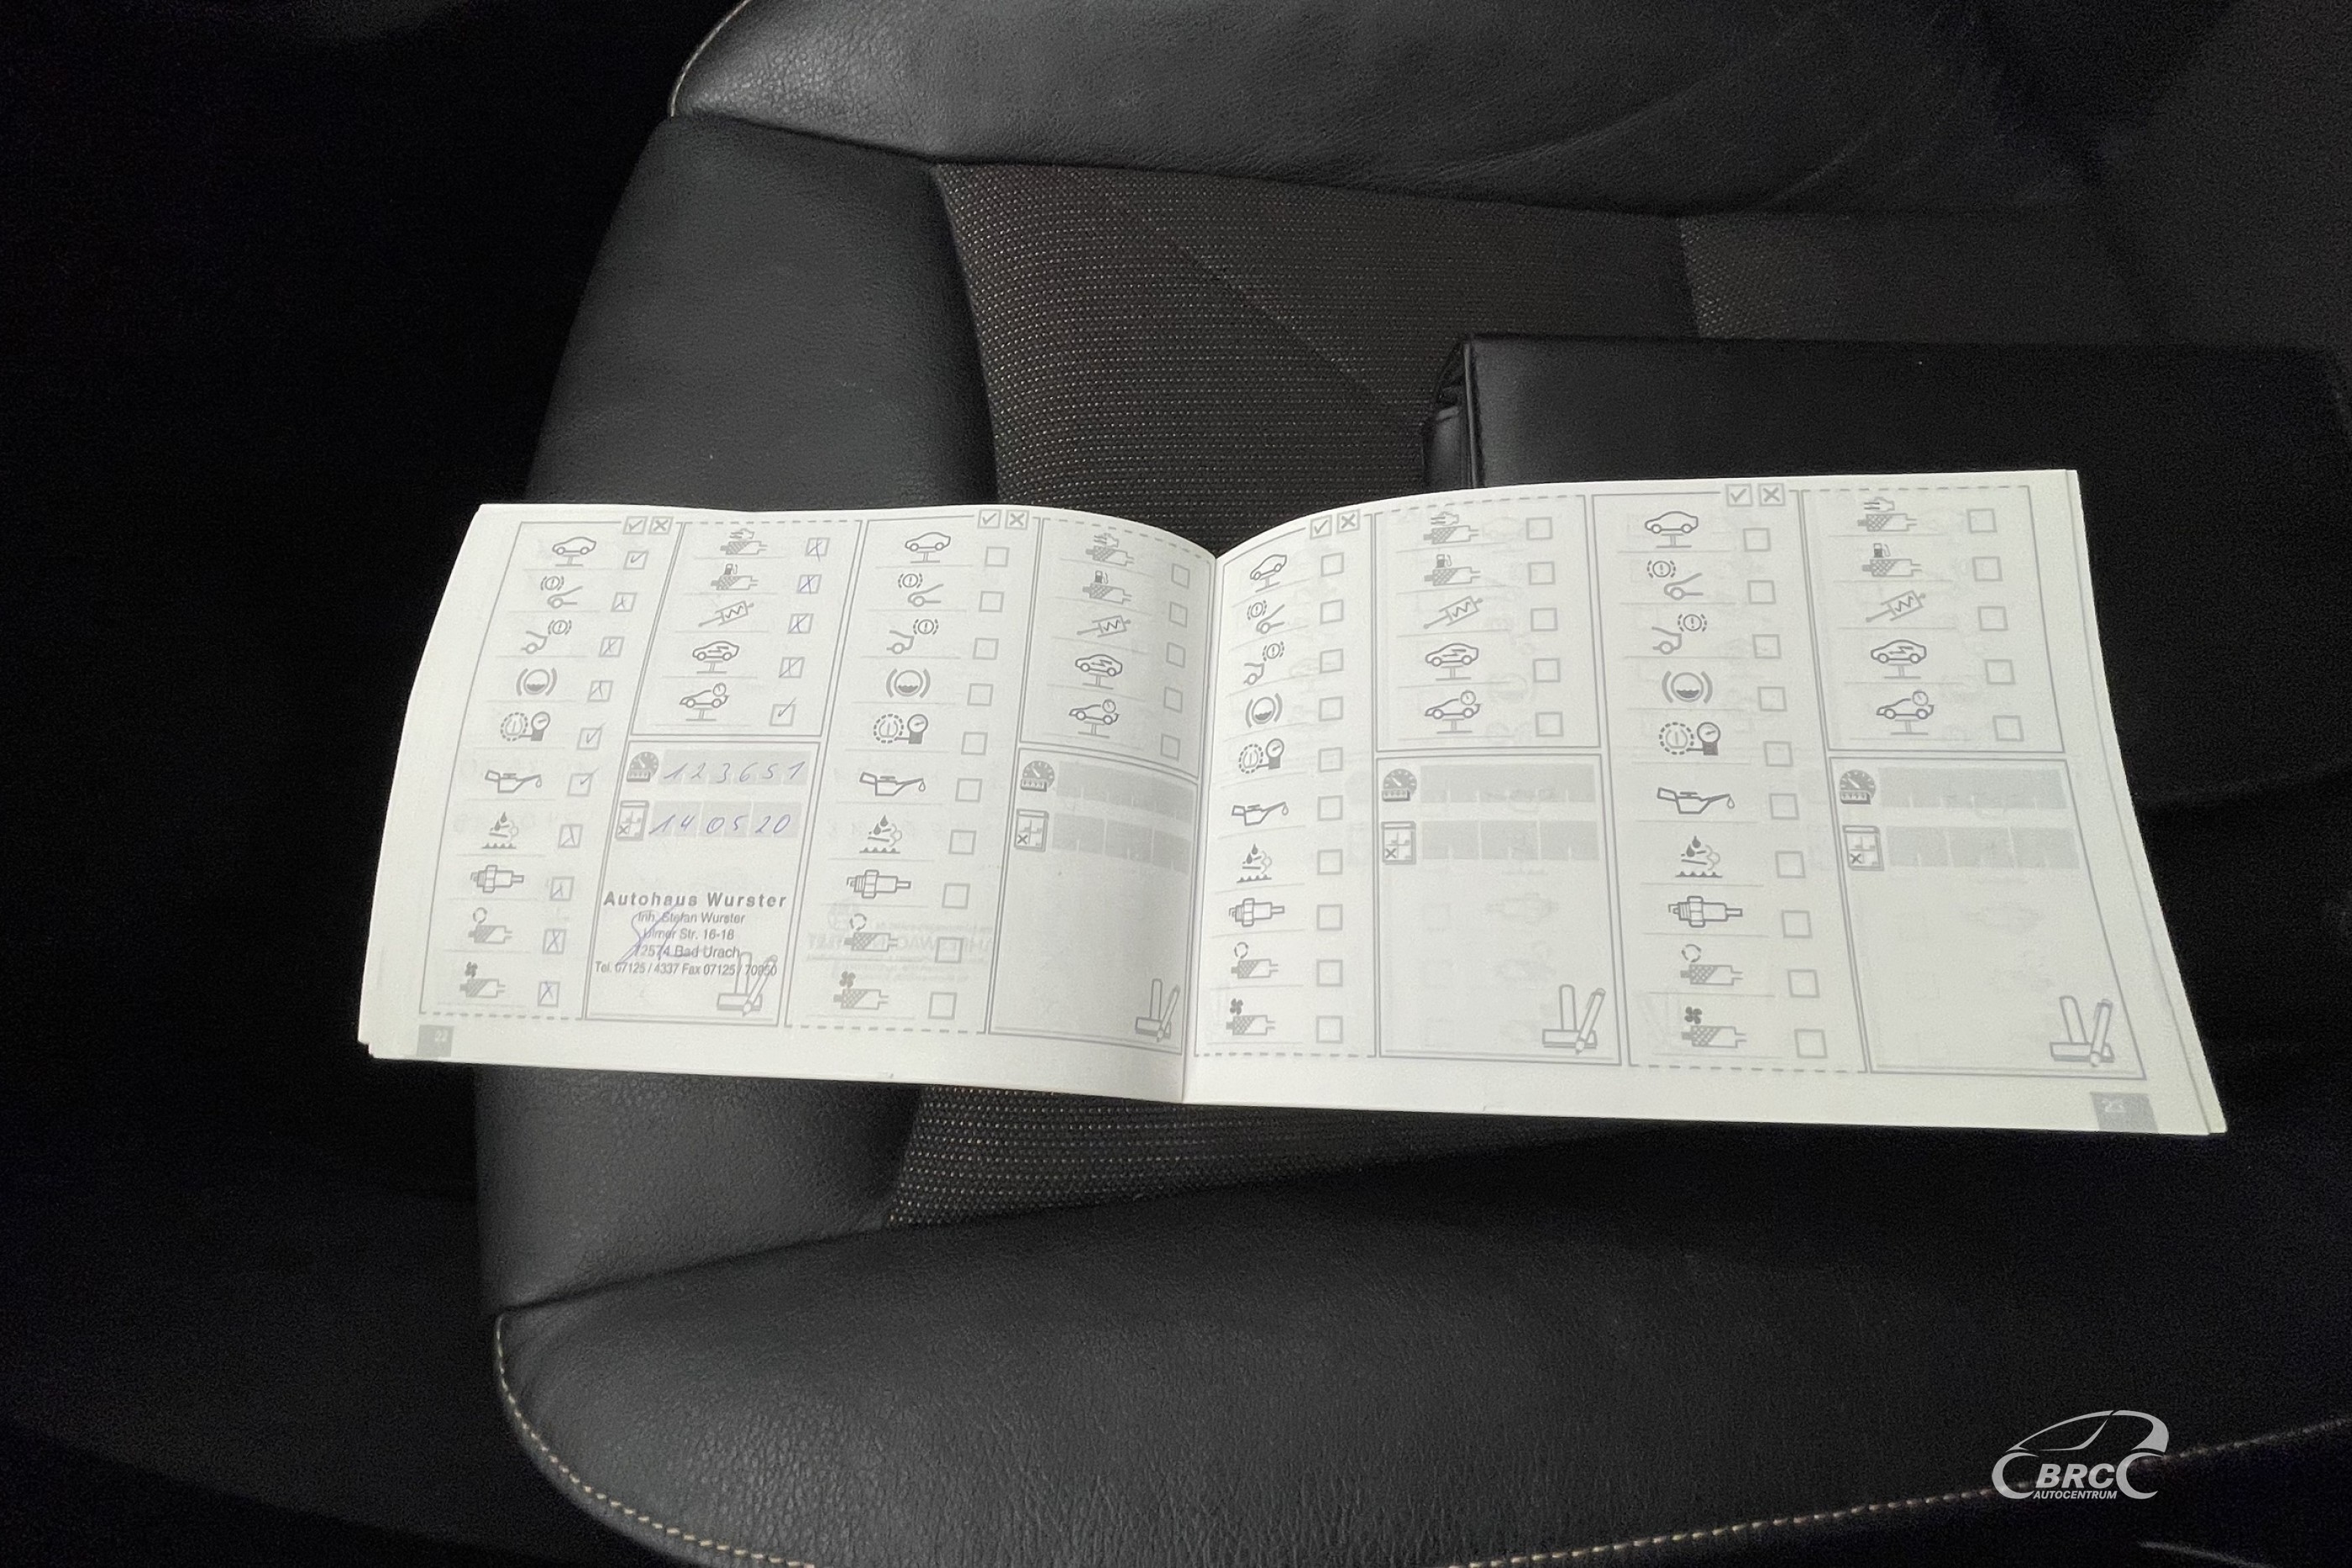 123651
14 05 20
Autohaus Wurster
Inh. Stefan Wurster
Ulmer Str. 16-18
72574 Bad Urach
Tel. 07125 / 4337 Fax 07125 / 70950
22
23
BRC
AUTOCENTRUM